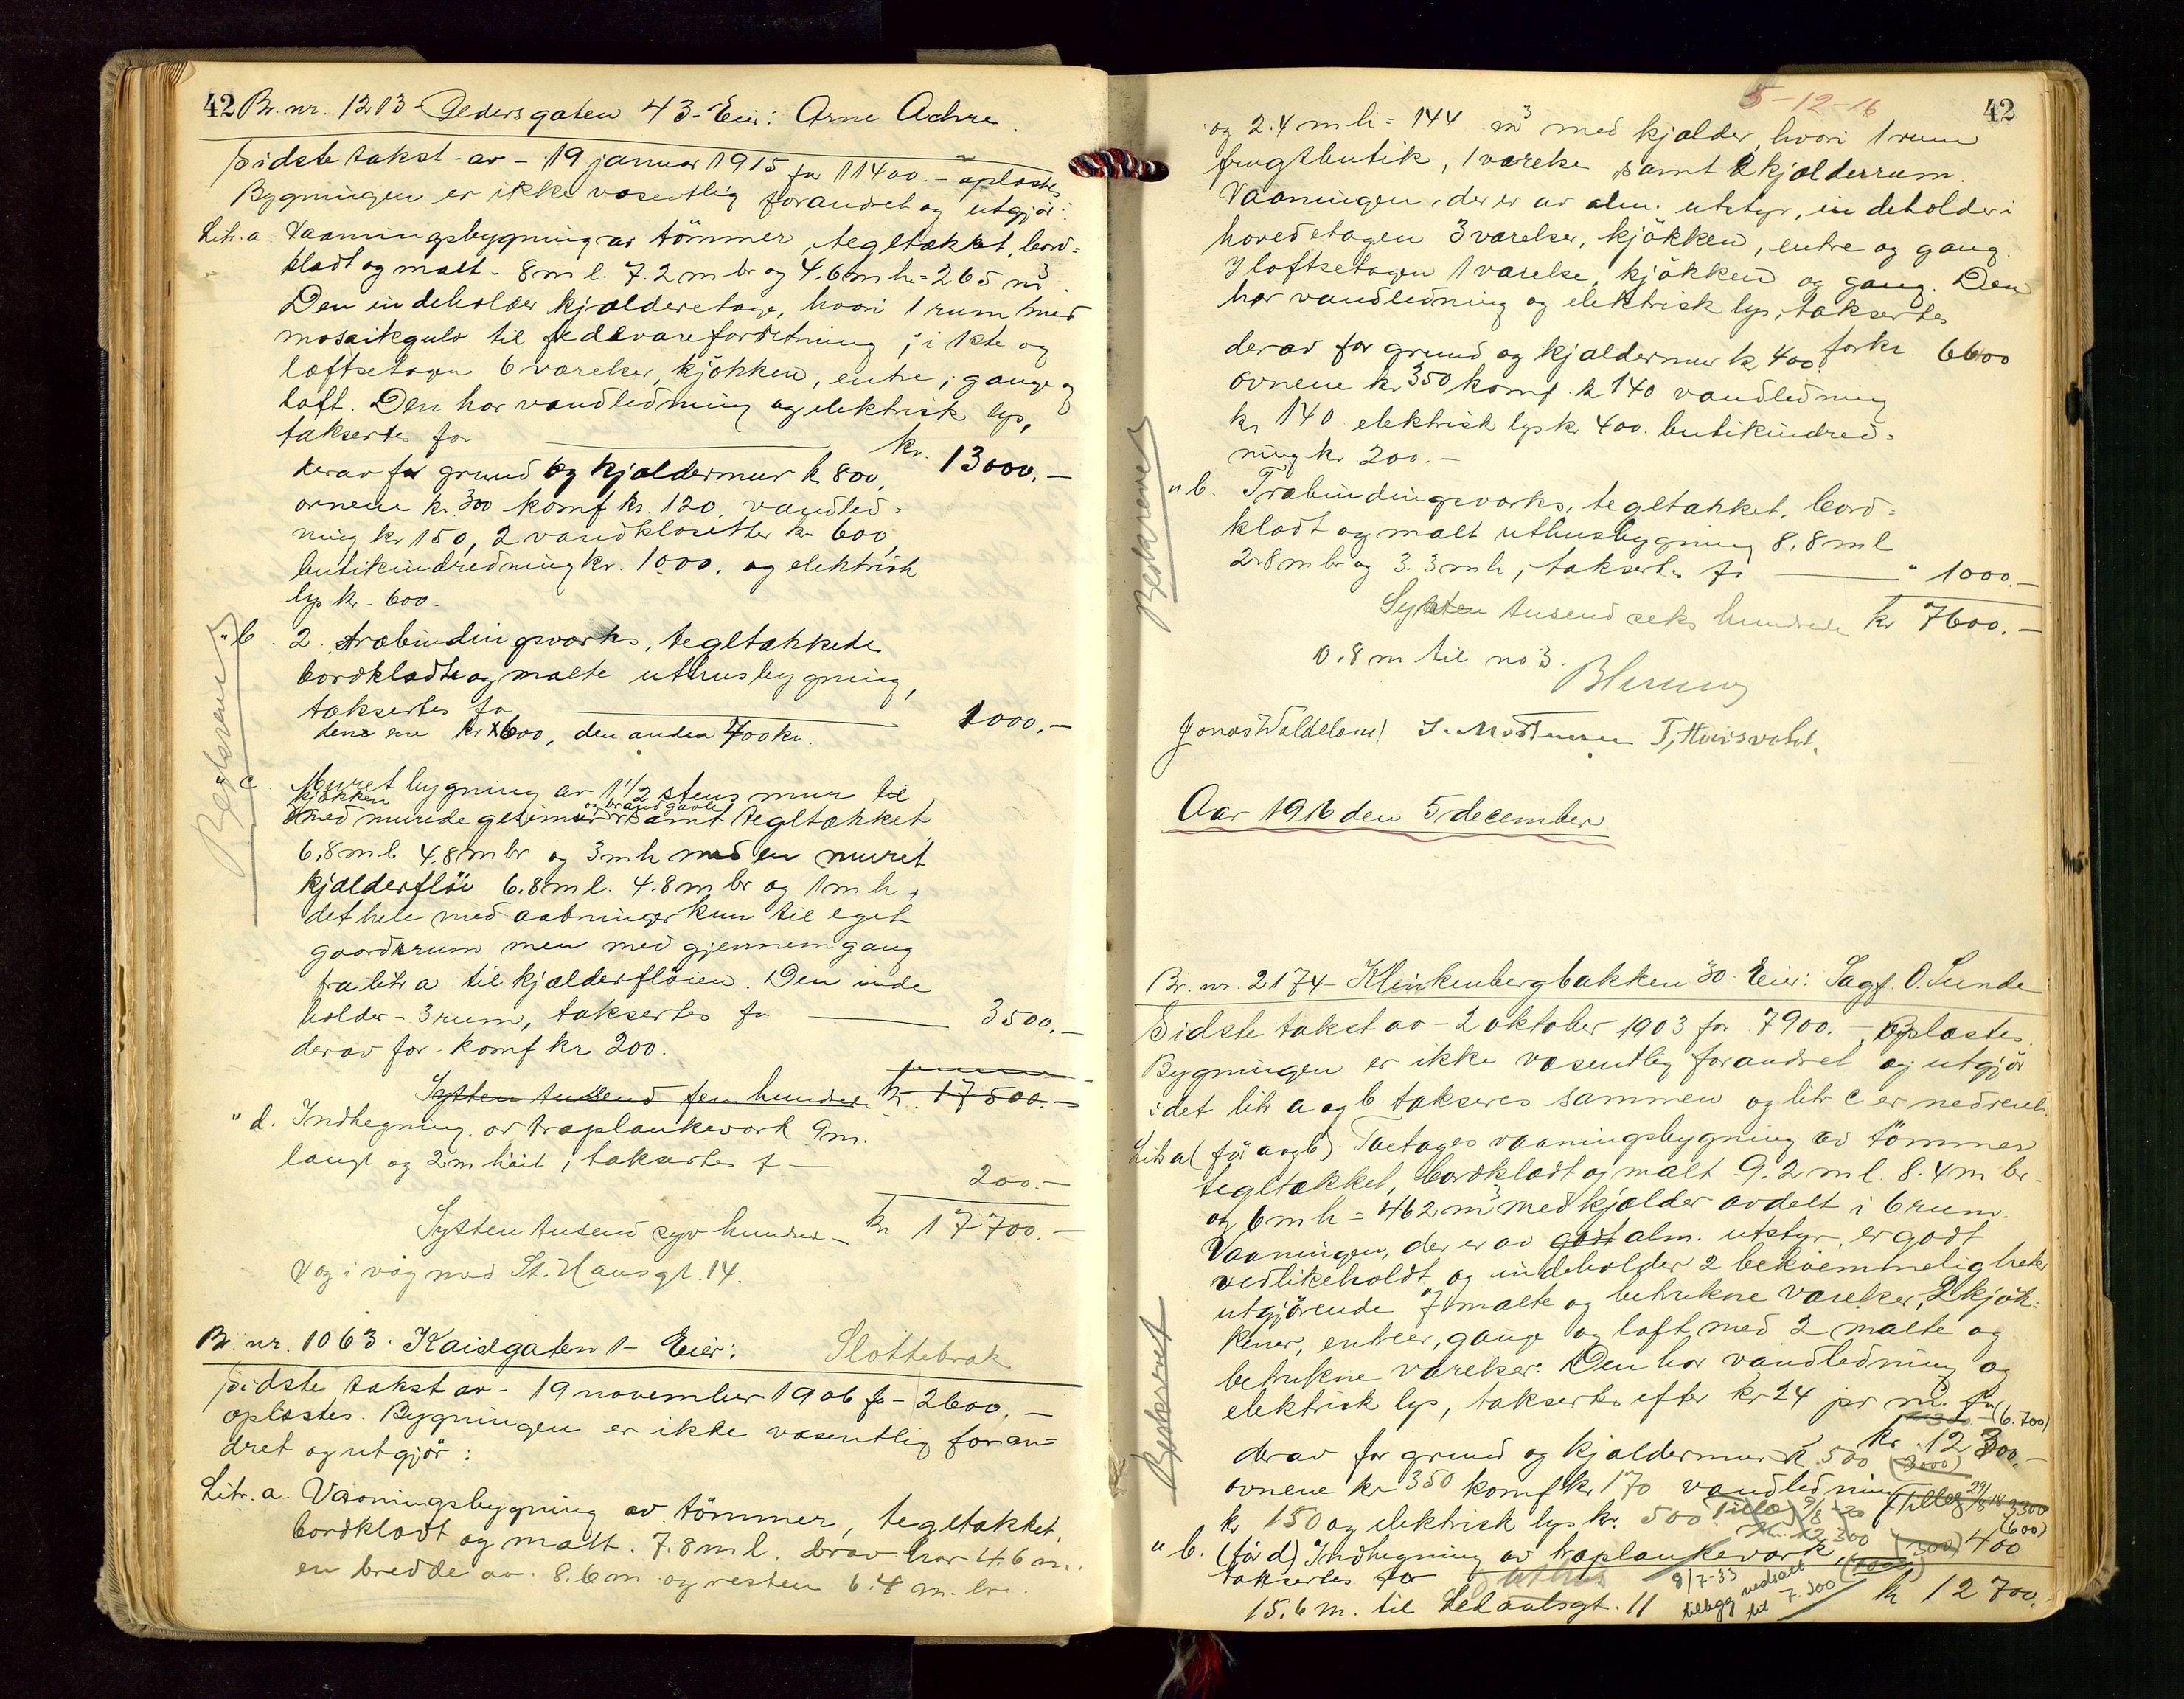 42 Br. nr. 1213 - Pedersgaten 43 - Eier: Arne Achre.
Sidste takst av - 19 januar 1915 for 11400.- oplæstes
Bygningen er ikke væsentlig forandret og utgjør:
Litr. a. Vaaningsbygning av tømmer, tegltækket, bord=
klædt og malt - 8 m l. 7.2 m br og 4.6 m h = 265 m³.
Den indeholder kjælderetage, hvori 1 rum med
mosaikgulv til fedevareforretning; i 1ste og
loftsetagen 6 værelser, kjøkken, entre, gange og
loft. Den har vandledning og elektrisk lys,
taksertes for kr. 13000.-
derav for grund og kjældermur kr 800,
ovnene kr. 300 komf kr. 120, vandled=
ning kr 150, 2 vandklosetter kr 600,
butikindredning kr. 1000. og elektrisk
lys kr. 600.
" b. 2 træbindingsværks, tegltækkede
bordklædte og malte uthusbygning,
taksertes for 1000.-
den ene kr 600, den anden 400 kr.
" c. Muret bygning av 1 1/2 stens mur til
kjøkken og brandgavle
med murede gesimser samt tegltækket
6,8 m l 4.8 m br og 3 m h med en muret
kjælderfløi 6.8 m l. 4.8 m br og 1 m h,
det hele med aabninger kun til eget
gaardsrum men med gjennemgang
fra litr a til kjælderfløien. Den inde
holder - 3 rum, taksertes for 3500.-
derav for komf kr 200.
Sytten tusend fem hundre kr. 17500.-
" d. Indhegning av træplankeværk 9 m.
langt og 2 m høit, taksertes f - 200.-
Sytten tusend syv hundre - kr 17700.-
V og i væg med St. Hansgt. 14.
Beskrevet
Br. nr. 1063. Kaisgaten 1 - Eier: Slottebrak
Sidste takst av - 19 november 1906 for - 2600.-
oplæstes. Bygningen er ikke væsentlig foran=
dret og utgjør:
Litr. a. Vaaningsbygning av tømmer, tegltækket,
bordklædt og malt. 7.8 m l. derav har 4.6 m.
en bredde av 8.6 m og resten 6.4 m. br.
5-12-16
42
og 2.4 m h = 144 m³ med kjælder, hvori 1 rum
frugtbutik, 1 værelse samt 2 kjælderrum.
Vaaningen, der er av alm. utstyr, indeholder i
hovedetagen 3 værelser, kjøkken, entre og gang.
I loftsetagen 1 værelse, kjøkken og gang. Den
har vandledning og elektrisk lys, taksertes
for kr. 6600
derav for grund og kjældermur kr 400
ovnene kr 350 komf. kr 140 vandledning
kr 140 elektrisk lys kr 400. butikindred=
ning kr 200.-
" b. Træbindingsværks, tegltækket, bord=
klædt og malt uthusbygning 8.8 m l
2.8 m br og 3.3 m h, taksertes for " 1000.-
Syv tusend seks hundrede kr 7600.-
0.8 m til no 3.
Jonas Waldeland S. Mortensen
Beskrevet
Aar 1916 den 5 december
Br. nr. 2174 - Klinkenbergbakken 30 - Eier: Sagf. O. Sunde
Sidste takst av - 2 oktober 1903 for 7900.- oplæstes.
Bygningen er ikke væsentlig forandret og utgjør
idet litr a og b. takseres sammen og litr c er nedrevet.
Litr a (før a og b). Toetages vaaningsbygning av tømmer
tegltækket, bordklædt og malt 9.2 m l. 8.4 m br.
og 6 m h = 462 m³ med kjælder avdelt i 6 rum.
Vaaningen, der er av godt alm. utstyr, er godt
vedlikeholdt og indeholder 2 bekvemmeligheter
utgjørende 7 malte og betrukne værelser, 2 kjøk=
kener, entreer, gange og loft med 2 malte og
betrukne værelser. Den har vandledning og
elektrisk lys, taksertes efter kr 24 pr m³. for
(6.700)
kr. 12300.-
derav for grund og kjældermur kr 500 (3000)
ovnene kr 350 komf kr 170 vandledning
kr 150 og elektrisk lys kr. 500. Tillæg 9/8-20 (Tillæg 29/8 18 3300
kr. 12300 (600)
" b. (før d) Indhegning av træplankeværk, (300) 400
taksertes for
8/7-33 tillegg nedsatt til 7.300
kr 12700.
15.6 m. til Hetlandsgt. 11
Beskrevet